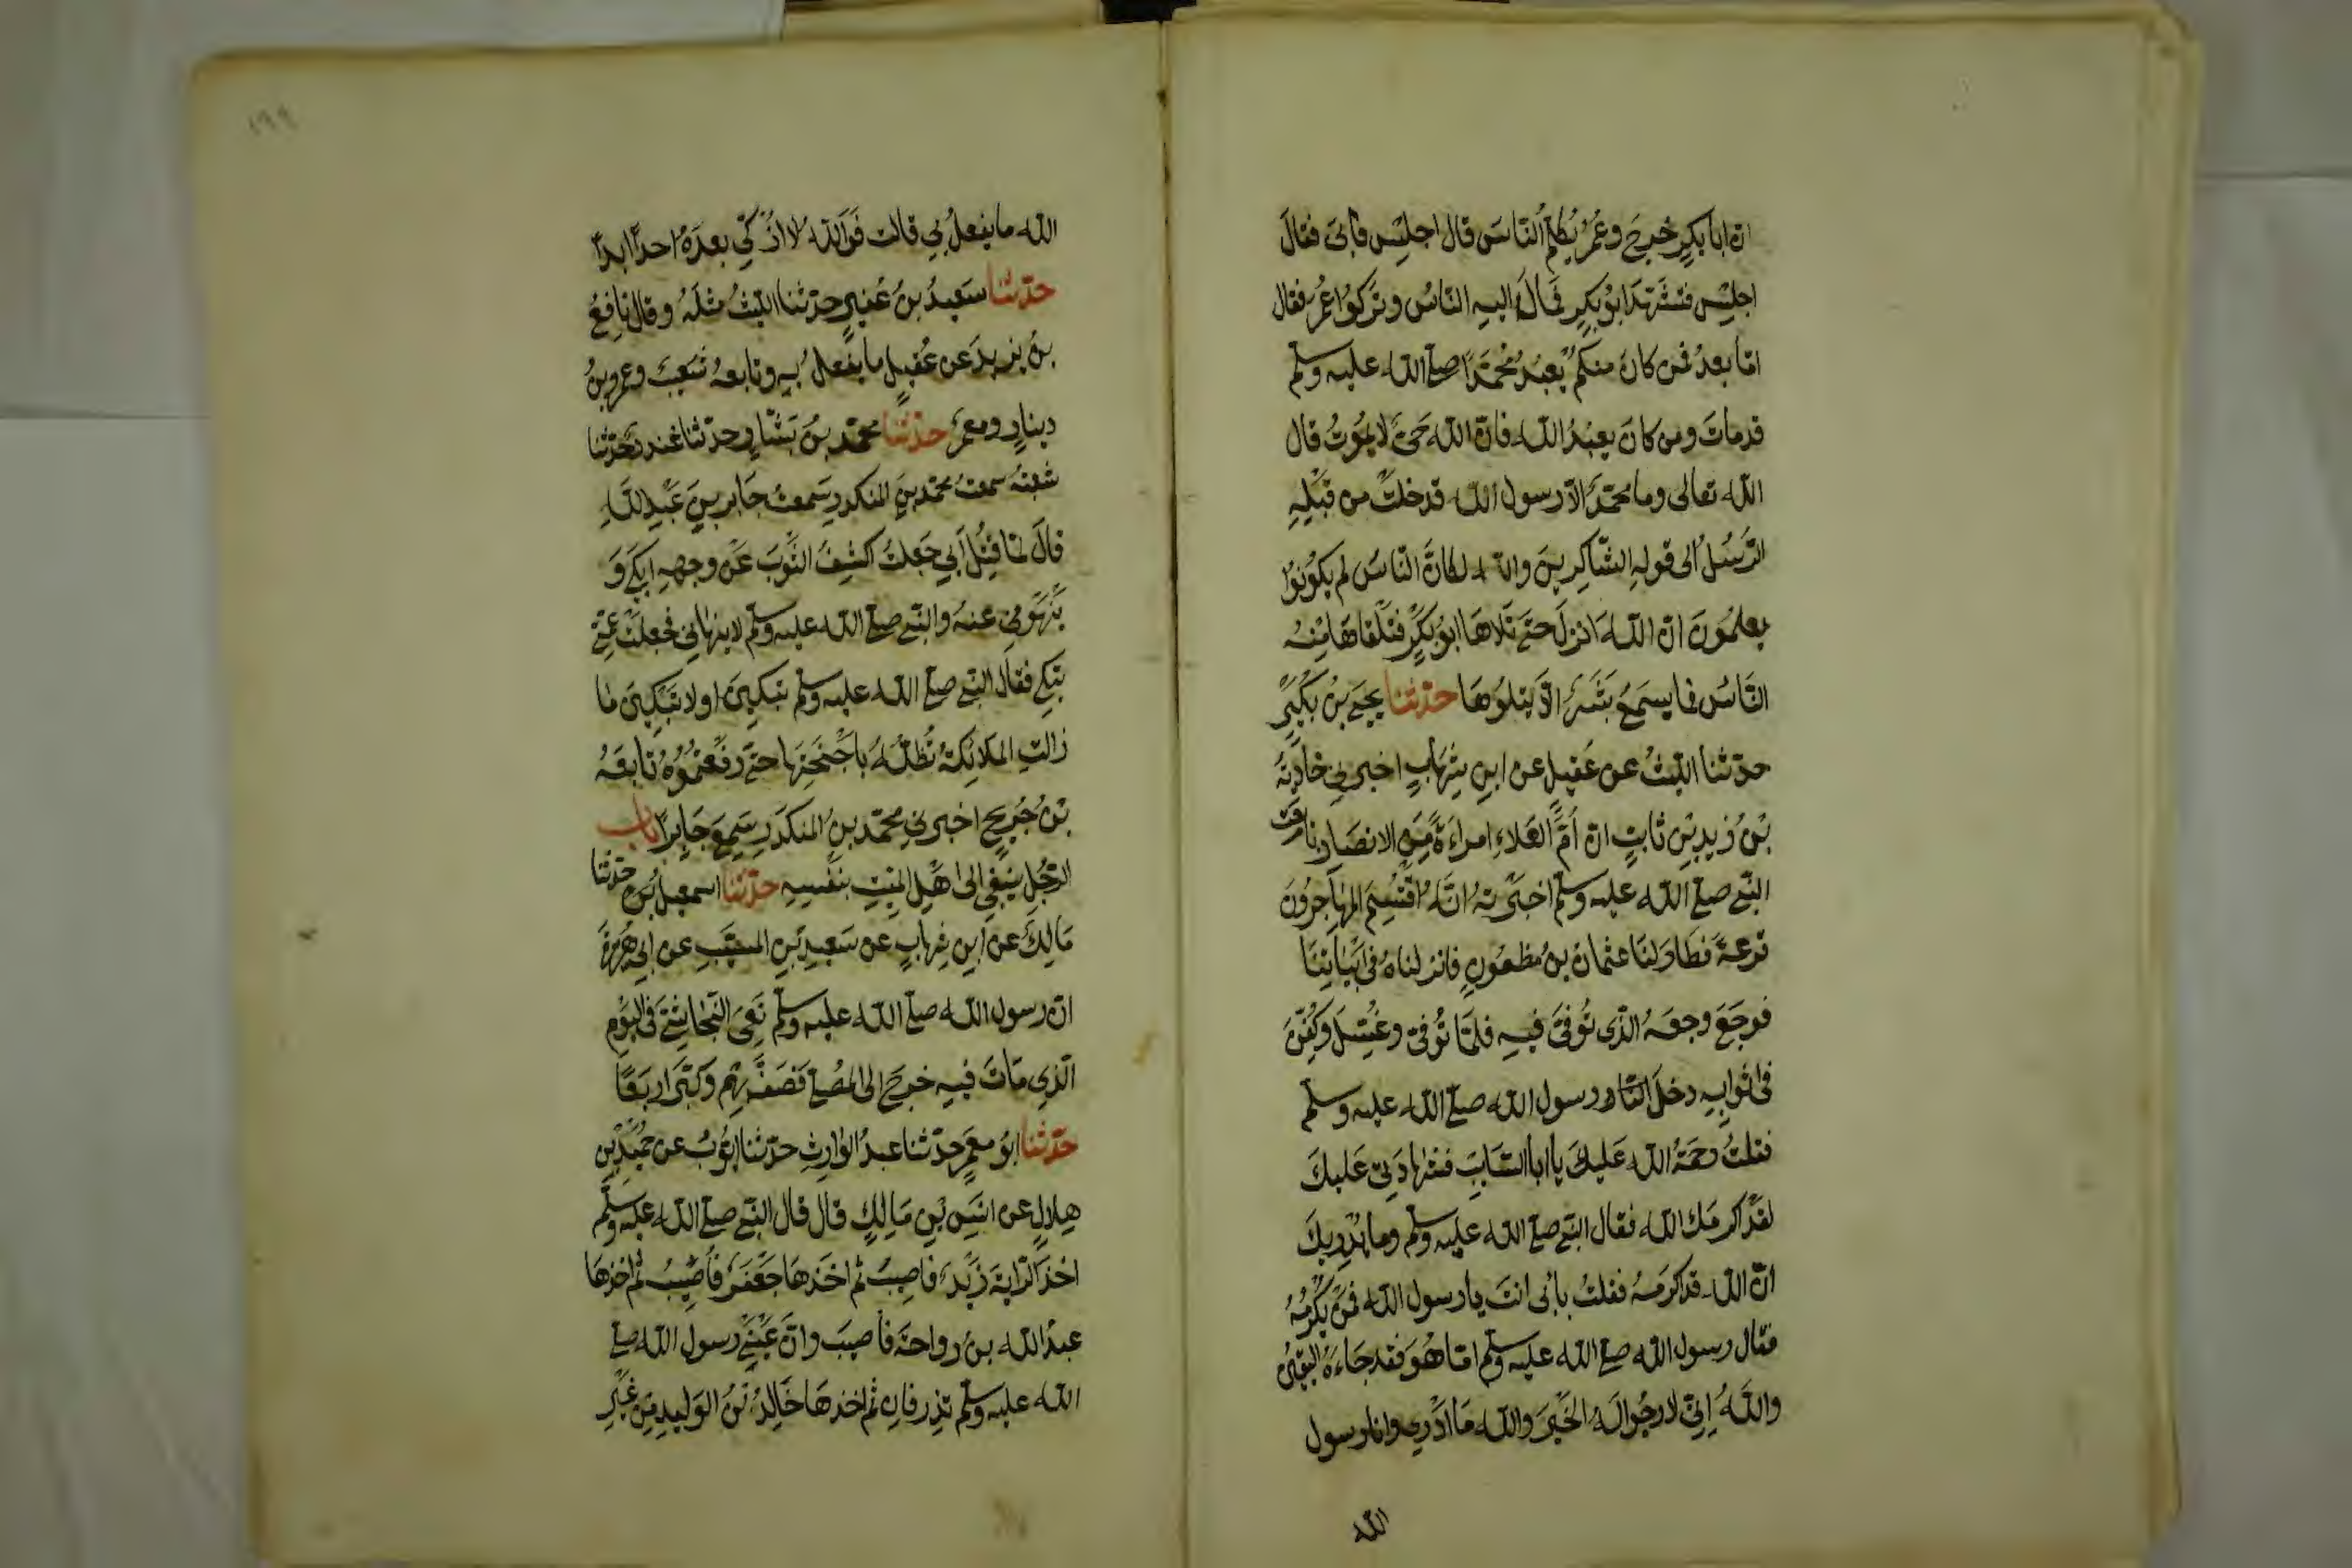 ان ابا بكرٍ خرج وعُمَرُ يُكلّمُ النّاسَ قال اجلِسْ فأبىَ فقالَ
اجلِسْ فتشهّدَ ابُو بكرٍ فمَالَ اليه النّاسُ وتركوُا عُمرُ فقال
امّا بعدُ فمن كانَ منكم يعْبُدُ مُحَمّدًا صلى الله عليه وسلم
قد ماتَ ومن كانَ يعبُدُ الله فانّ الله حَىٌّ لا يموُتُ قال
الله تعالى وما محمّدٌ الاّ رسول الله قد خلتْ من قبْلِهِ
الرّسُلُ الى قولهِ الشّاكرِينَ والله لكانَّ النّاسَ لم يكونوُا
يعلمُونَ ان الله انزلَ حتى تَلاهَا ابوُ بكرٍ فتلقاهَا مِنْهُ
النّاسُ فما يسمعُ بَشَرٌ الاّ يتلوُهَا حدّثنا يحيىَ بنُ بكَيْرٍ
حدّثنا الليثُ عن عُقيلٍ عن ابنِ شِهابٍ اخبرنِي خارجةُ
بْنُ زيدِ بْنِ ثابتٍ انّ اُمَّ العَلاءِ امراءَةً مِنَ الانصَارِ بايعت
النّبى صلى الله عليه وسلم اخبرَتهُ انّهُ اقتُسِمَ المهاجِرُونَ
قرعةً فطَارَ لنَا عثمانُ بنُ مظعُونٍ فانزلناهُ فى ابْياتِنَا
فوجَعَ وجعَهُ الّذى تُوفّىَ فيهِ فلمّا تُوفّى وغُسِّلَ وكُفّنَ
فى اثوابهِ دخلَ النّار رسول الله صلى الله عليه وسلم
فقلتُ رحمةُ الله عَليكَ يا ابا السّايبِ فشهادَتِى عَليكَ
لقدْ اكرمَك الله فقال النّبى صلى الله عليه وسلم وما يُدْرِيكَ
انّ الله قد اكرمَهُ فقلتُ بأبى انتَ يا رسول الله فمنْ يكْرِمُهُ
فقال رسول الله صلى الله عليه وسلم امّا هُوَ فقد جَاءَهُ اليقينُ
واللهُ اِنّى لارجُوا لهُ الخَيْرَ والله مَا ادْرِى وانا رسول
الله
١٩٩
الله ما يفعلُ بِي قالت فوَالله لا ازُكّي بعدَهُ احدًا ابدًا
حدّثنا سَعيدُ بنُ عُفيرٍ حدّثنا الليثُ مثلهُ وقال نافِعُ
بنُ يزيدَ عن عُقيلٍ ما يفعلُ بهِ وتابعهُ شعَيبٌ وعمرو بنُ
دينارٍ ومعمرٌ حدّثنا محمّد بنُ بَشّارٍ حدّثنا غندرٌ حدّثنا
شعبةُ سمعتُ محمّد بنَ المنكدرِ سَمعتُ جَابر بنَ عَبْدِ اللهِ
قالَ لمّا قُتِلَ اَبِي جَعلتُ اكشِفُ الثّوبَ عَنْ وجههِ ابكى وَ
يَنْهَوْنِى عنهُ والنّبى صلى الله عليه وسلم لا ينهانى فجعلتْ عمّتى
تبكى فقال النّبى صلى الله عليه وسلم تبكينَ او لا تبْكينَ ما
زالتِ الملائكةُ تُظلّهُ باَجْنحَتِهَا حتى رفعْتمُوُهُ تابعَهُ
بْنُ جُرَيجٍ اخبرنِى محمّد بنُ المنكدَرِ سَمعَ جَابِرًا باب
الرّجُلِ ينعى الىَ اهْلِ الميّتِ بنفْسِهِ حدّثنا اسمعيلُ بنُ حدّثنا
مَالِكٌ عن ابنِ شهابٍ عن سَعيدِ بنِ المسيّبِ عن ابى هُريرةَ
انّ رسول الله صلى الله عليه وسلم نَعىَ النّجاشىّ فى اليوَمِ
الّذِى مَاتَ فيهِ خرجَ الى المُصلى فصَفَّ بِهِم وكبّرَ اربعًا
حدّثنا ابوُ معمَرٍ حدّثنا عبدُ الوارِثِ حدّثنا ايّوُبُ عن حُمَيْدِ بْنِ
هِلالٍ عن انَسِ بْنِ مَالِكٍ قال قال النّبى صلى الله عليه وسلم
اخذَ الرّايةَ زَيْدٌ فاصيبَ ثم اخذهَا جَعْفرٌ فاُصِيبُ ثم اخذهَا
عبدُ الله بنُ رواحةَ فأصيبَ وانّ عَيْنَىْ رسول الله صلى
الله عليه وسلم تذرفانِ ثم اخذهَا خَالِدُ بْنُ الوَليدِ مِنْ غيْرِ